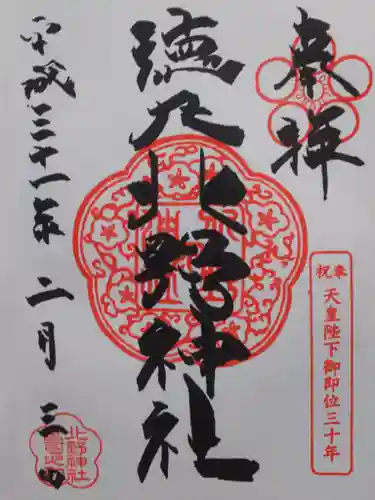 奉拝
奉祝 天皇陛下御即位三十年
徳乃北野神社
平成三十一年 二月 三日
北野神社